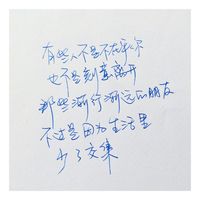 有些人不是不在乎你
也不是刻意离开
那些渐行渐远的朋友
不过是因为生活里
少了交集